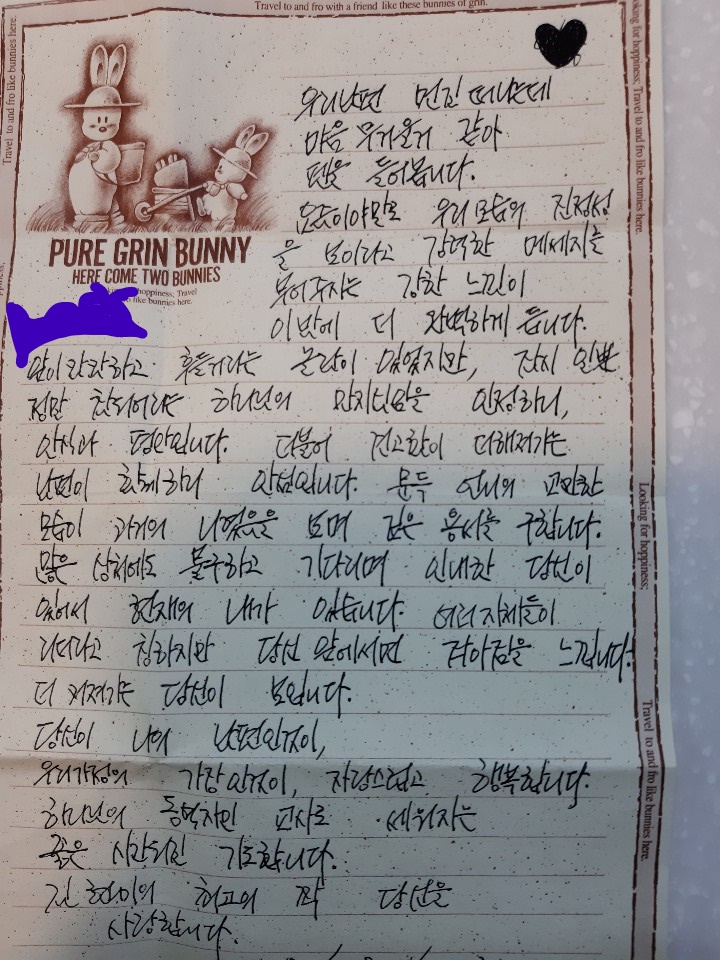 Travel to and fro with a friend like these bunnies of grin.
Travel to and fro like bunnies here.
Looking for hoppiness; Travel to and fro like bunnies here.
우리남편 먼길 떠나는데
마음 무거울거 같아
펜을 들어봅니다.
우리 모습의 진정성
을 보이라고 강력한 메세지를
부어주시는 강한 느낌이
이밤에 더 완벽하게 듭니다.
PURE GRIN BUNNY
HERE COME TWO BUNNIES
hoppiness; Travel
fro like bunnies here.
앞이 캄캄하고 후들거리는 불안이 있었지만, 잔치
정말 참되어라는 하나님의 만지심을 인정하니,
안식과 평안입니다. 더불어 견고함이 더해져가는
남편이 함께하니 안심입니다. 문득 언니의 교만한
모습이 과거의 나였음을 보며 깊은 용서를 구합니다.
많은 상처에도 불구하고 기다리며 인내한 당신이
있어서 현재의 내가 있습니다. 여러 지체들이
리더라고 칭하지만 당신 앞에서면 작아짐을 느낍니다.
더 커져가는 당신이 보입니다.
당신이 나의 남편인것이,
우리가정의 가장인것이, 자랑스럽고 행복합니다.
하나님의 동역자인 교사로 세워지는
귀한 시간되길 기도합니다.
최고의 짝 당신을
사랑합니다.
Looking for hoppiness;
Travel to and fro like bunnies here.